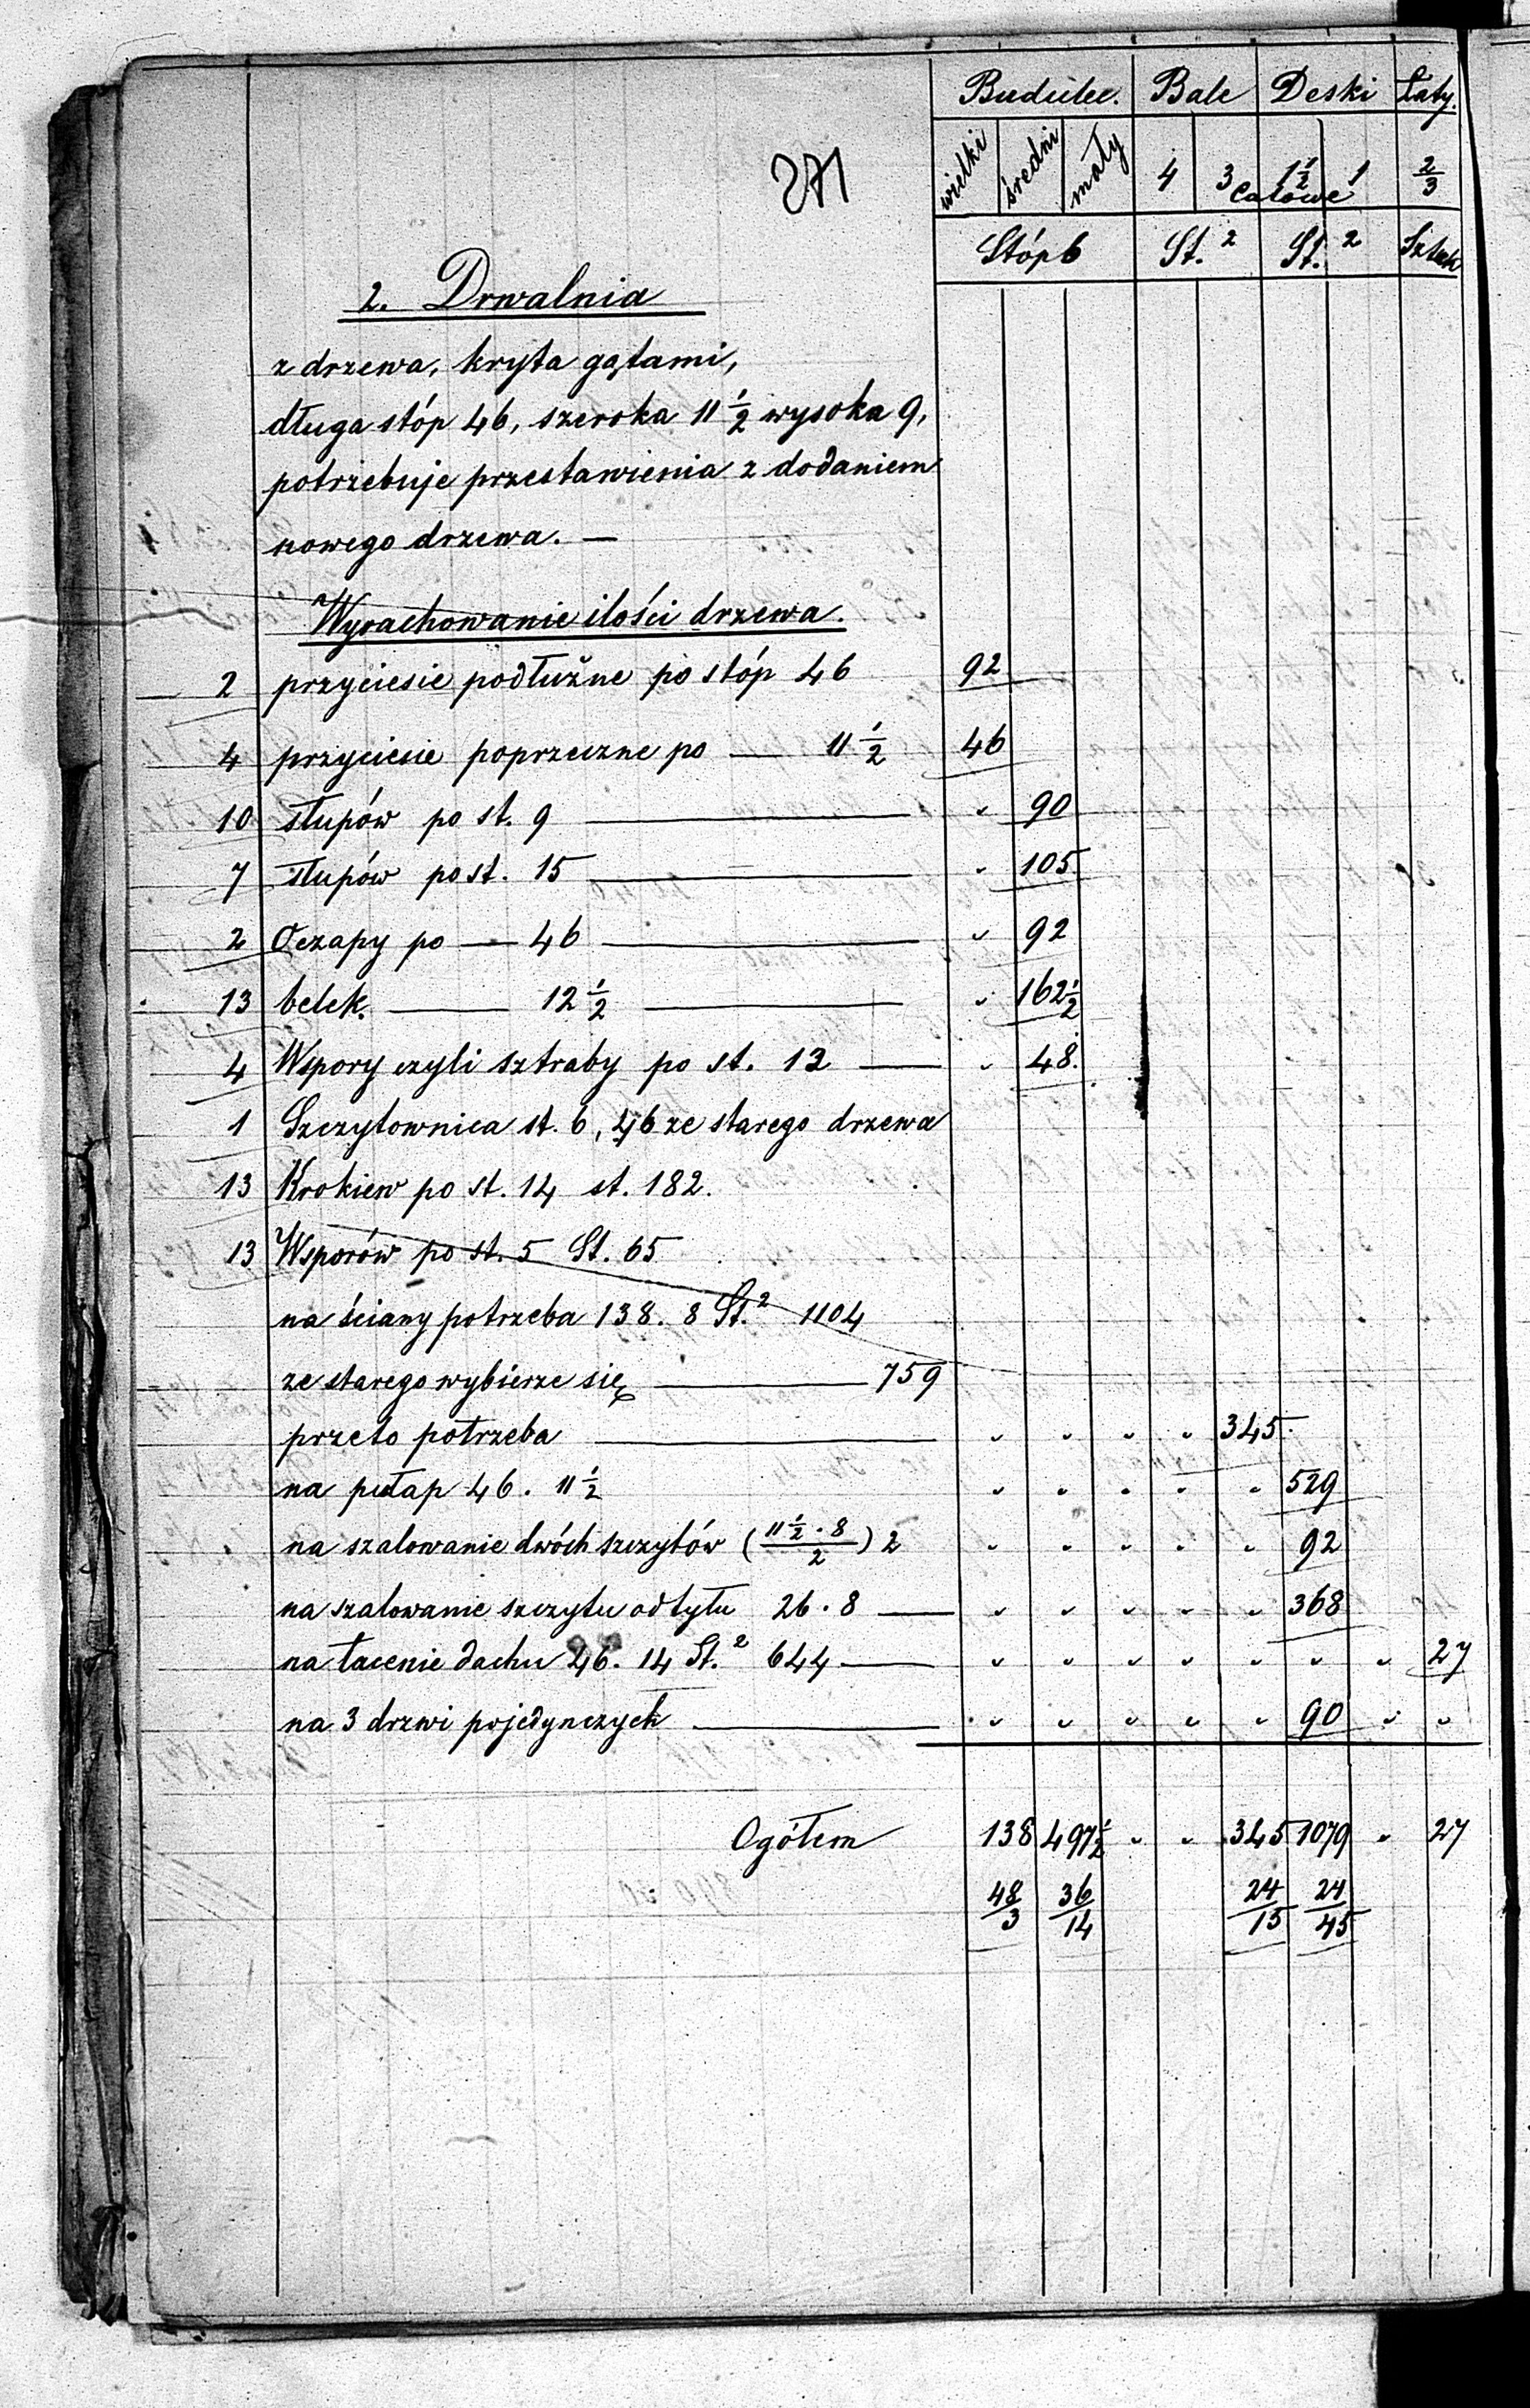 Budulec. Bale Deski Łaty.
wielki średni mały 4 3 1½ 1 2/3
Calowe
Stóp b St.² St.² Sztuk
271
2. Drwalnia
z drzewa, kryta gątami,
długa stóp 46, szeroka 11½ wysoka 9,
potrzebuje przestawienia z dodaniem
nowego drzewa. —
Wyrachowanie ilości drzewa.
2 przyciesie podłużne po stóp 46 92
4 przyciesie poprzeczne po — 11½ 46
10 słupów po st. 9 — " 90
7 słupów po st. 15 — " 105
2 Oczapy po — 46 — " 92
13 belek. — 12½ — " 162½
4 Wspory czyli sztraby po st. 12 — " 48.
1 Szczytownica st. 6, 46 ze starego drzewa
13 Krokiew po st. 14 st. 182.
13 Wsporów po st. 5 St. 65
na ściany potrzeba 138. 8 St.² 1104
ze starego wybierze się — 759
przeto potrzeba — " " " " 345
na pułap 46. 11½ " " " " " 529
na szalowanie dwóch szczytów (11½ . 8 / 2) 2 " " " " " 92
na szalowanie szczytu od tyłu 26 . 8 — " " " " " 368
na łacenie dachu 46. 14 St.² 644 — " " " " " " " 27
na 3 drzwi pojedynczych — " " " " " 90 " "
Ogółem 138 497½ " " 345 1079 " 27
48/3 36/14 24/15 24/45